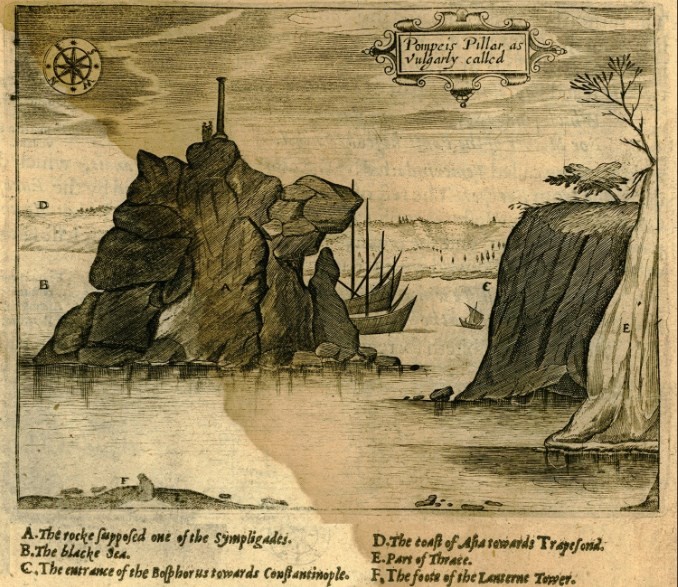 Pompeis Pillar as
vulgarly called
D
B
A
C
E
F
A. The rocke supposed one of the Sympligades.
B. The blacke Sea.
C. The entrance of the Bosphorus towards Constantinople.
D. The coast of Asia towards Trapesond.
E. Part of Thrace.
F. The foote of the Lanterne Tower.